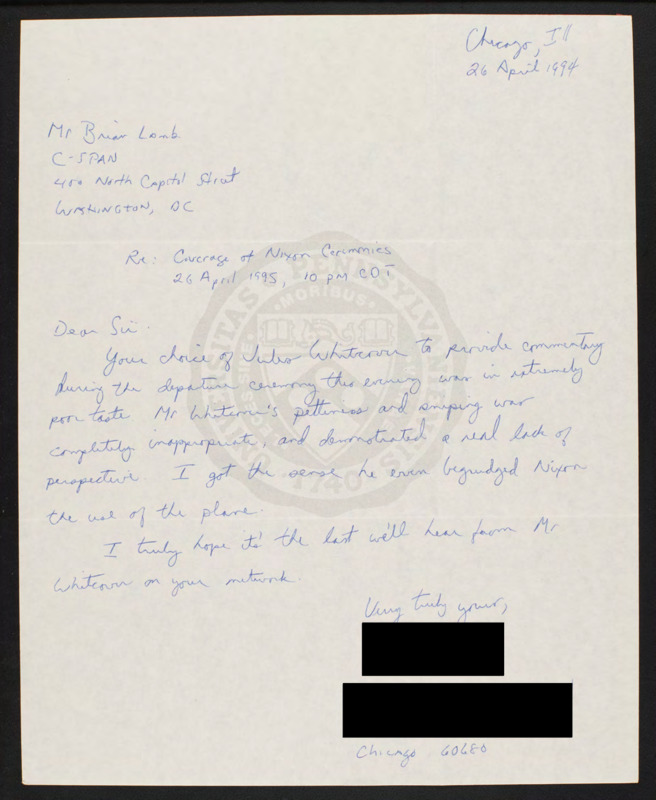 Chicago, Ill
26 April 1994
Mr Brian Lamb
C-SPAN
400 North Capitol Street
WASHINGTON, DC
Re: Coverage of Nixon Ceremonies
26 April 1995, 10 PM CDT
Dear Sir.
Your choice of Jules Whitcover to provide commentary
during the departure ceremony this evening was in extremely
poor taste. Mr Whitcover's pettiness and sniping was
completely inappropriate, and demonstrated a real lack of
perspective. I got the sense he even begrudged Nixon
the use of the plane.
I truly hope it's the last we'll hear from Mr
Whitcover on your network.
Very truly yours,
Chicago 60680